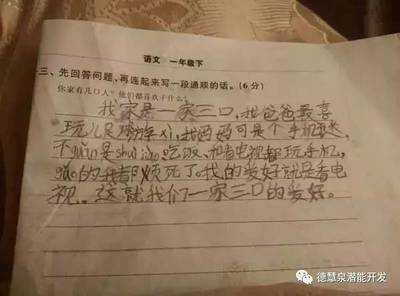 语文·一年级下
三、先回答问题,再连起来写一段通顺的话。(6分)
你家有几口人?他们都喜欢干什么?
我家是一家三口,我爸爸最喜
玩儿是
我妈妈可是个手机迷,
不guǎn是shuì jiào吃饭、和看电视都玩手机,
的我都烦死了。我的爱好就是看电
视。这就我们一家三口的爱好。
德慧泉潜能开发